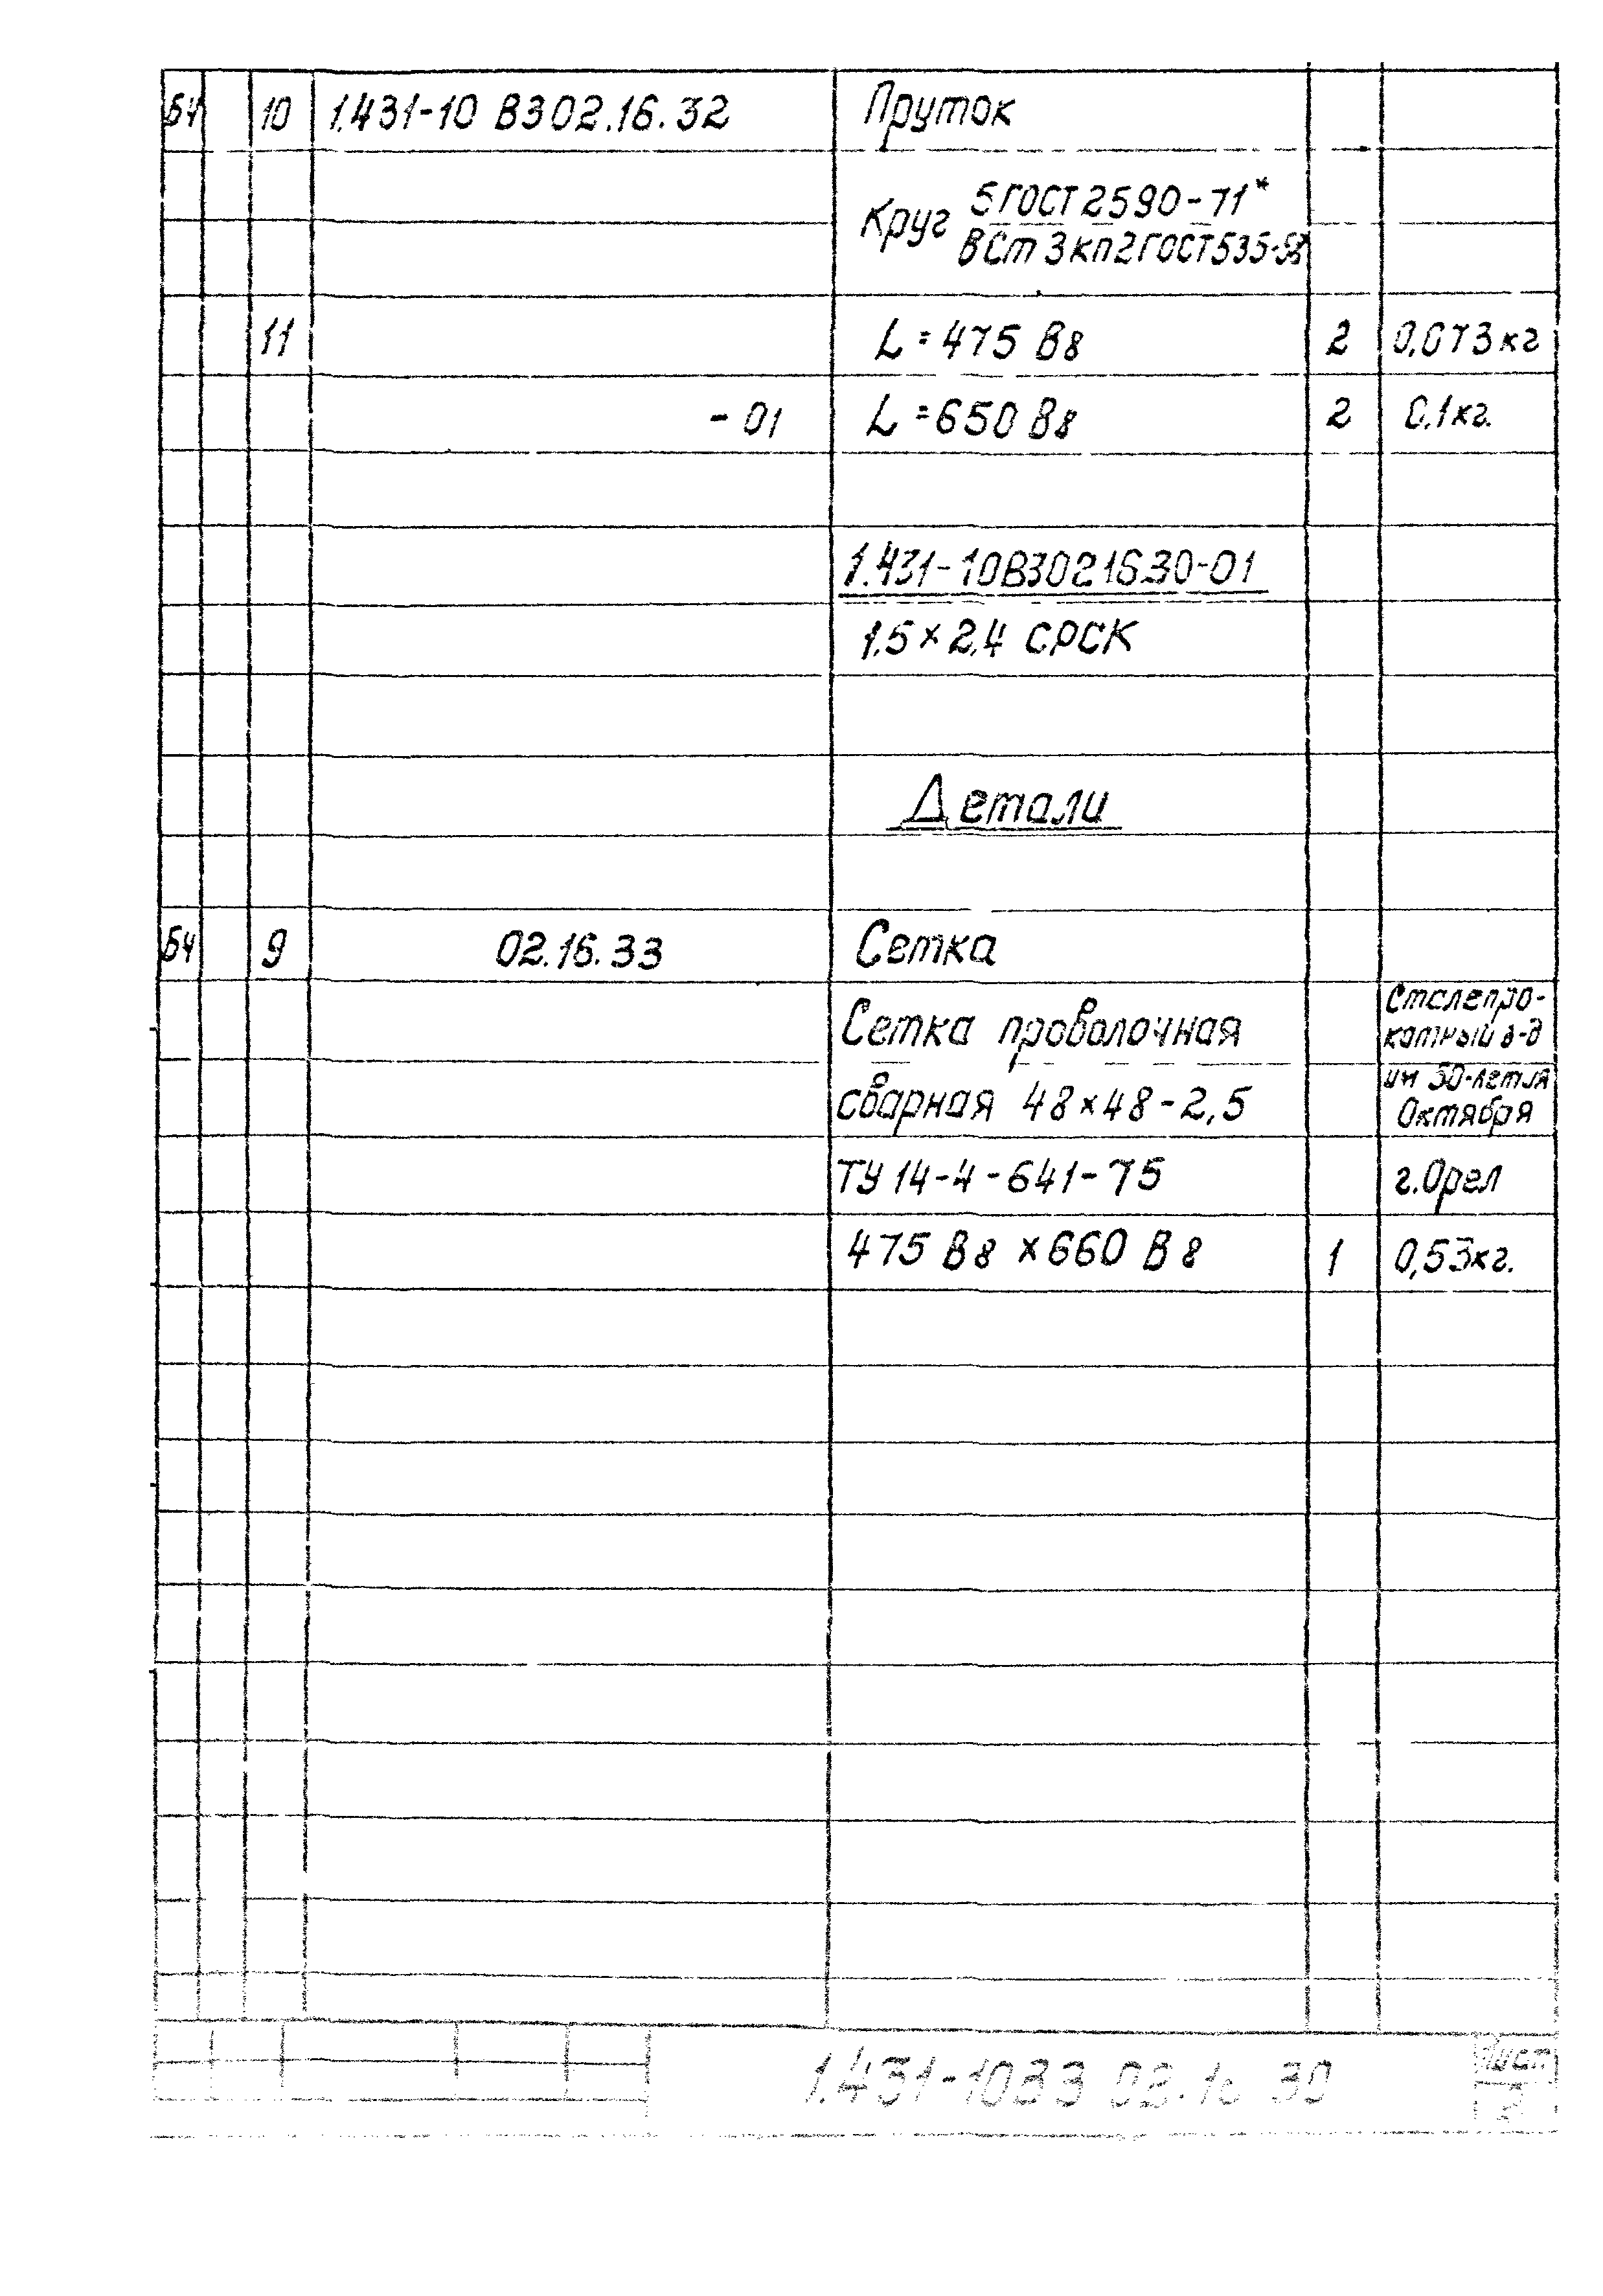 БЧ 10 1.431-10 В3 02.16.32 Пруток
Круг 5 ГОСТ 2590-71*
ВСт 3 кп2 ГОСТ 535-58
11 L=475 В8 2 0,073кг
- 01 L=650 В8 2 0.1кг.
1.431-10В3021630-01
1.5×2.4 СРСК
Детали
БЧ 9 02.16.33 Сетка
Сталепро-
Сетка проволочная катный з-д
им 50-летия
сварная 48×48-2,5 Октября
ТУ 14-4-641-75 г.Орел
475 В8 ×660 В8 1 0,53кг.
1.431-10В3 02.16 30 Лист